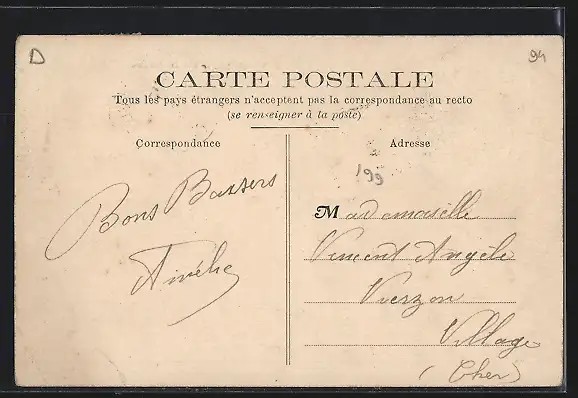 D
94
CARTE POSTALE
Tous les pays étrangers n'acceptent pas la correspondance au recto
(se renseigner à la poste)
Correspondance
Adresse
199
Bons Baisers
Amélie
Mademoiselle
Vincent Angèle
Vierzon
Village
(Cher)